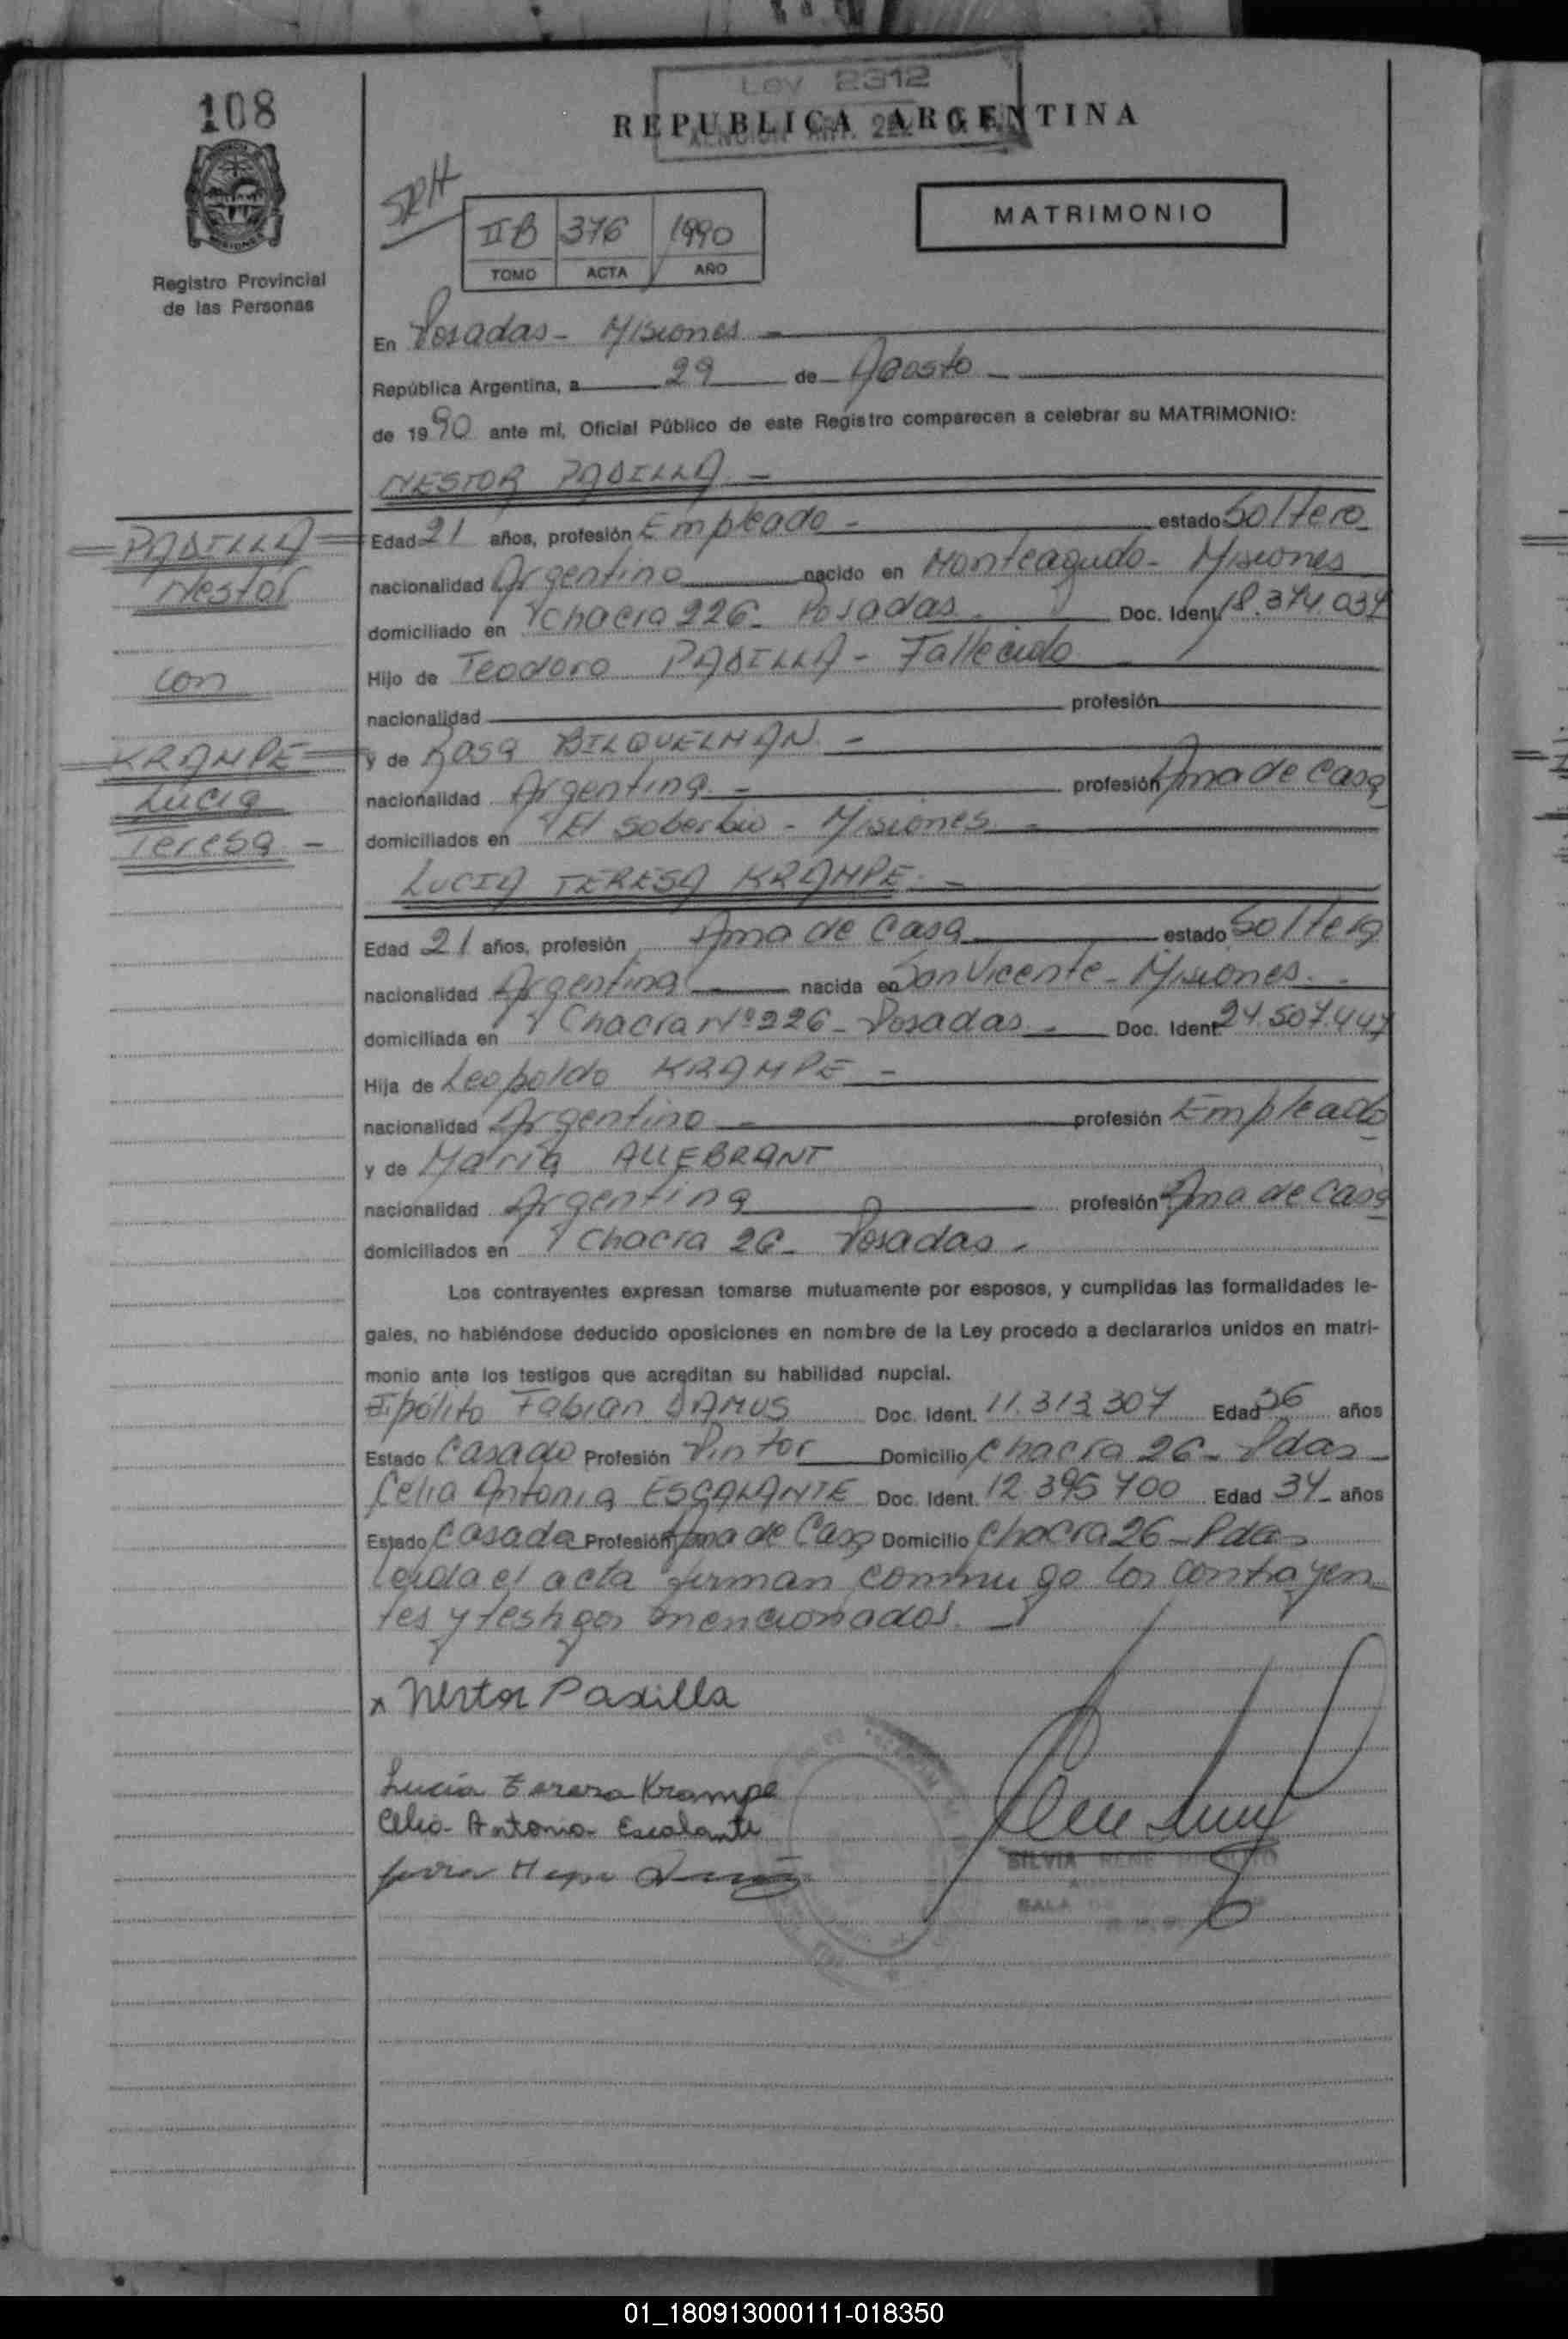 108
Ley 2312
REPUBLICA ARGENTINA
SRH
II B 376 1990
TOMO ACTA AÑO
MATRIMONIO
Registro Provincial
de las Personas
En Posadas - Misiones -
República Argentina, a 29 de Agosto -
de 1990 ante mí, Oficial Público de este Registro comparecen a celebrar su MATRIMONIO:
NESTOR PADILLA -
PADILLA
Nestor
con
KRAMPE
Lucia
Teresa -
Edad 21 años, profesión Empleado - estado Soltero
nacionalidad Argentino nacido en Monteagudo - Misiones
domiciliado en Chacra 226 - Posadas. Doc. Ident. 18.374.034
Hijo de Teodoro PADILLA - Fallecido
nacionalidad profesión
y de Rosa BILQUELMAN. -
nacionalidad Argentina. - profesión Ama de Casa
domiciliados en El Soberbio - Misiones. -
LUCIA TERESA KRAMPE. -
Edad 21 años, profesión Ama de Casa estado Soltera
nacionalidad Argentina nacida en San Vicente - Misiones. -
domiciliada en Chacra Nº 226 - Posadas. Doc. Ident. 24.507.447
Hija de Leopoldo KRAMPE -
nacionalidad Argentino - profesión Empleado
y de María ALLEBRANT
nacionalidad Argentina profesión Ama de Casa
domiciliados en Chacra 26 - Posadas.
Los contrayentes expresan tomarse mutuamente por esposos, y cumplidas las formalidades le-
gales, no habiéndose deducido oposiciones en nombre de la Ley procedo a declararlos unidos en matri-
monio ante los testigos que acreditan su habilidad nupcial.
Ipólito Fabian DAMUS Doc. Ident. 11.313.307 Edad 36 años
Estado Casado Profesión Pintor Domicilio Chacra 26 - Pdas
Celia Antonia ESCALANTE Doc. Ident. 12.395.700 Edad 34 - años
Estado Casada Profesión Ama de Casa Domicilio Chacra 26 - Pdas
Leída el acta firman conmigo los contrayen
tes y testigos mencionados. -
x Nestor Padilla
Lucia Teresa Krampe
Celia Antonia Escalante
SILVIA RENE
SALA
01_180913000111-018350